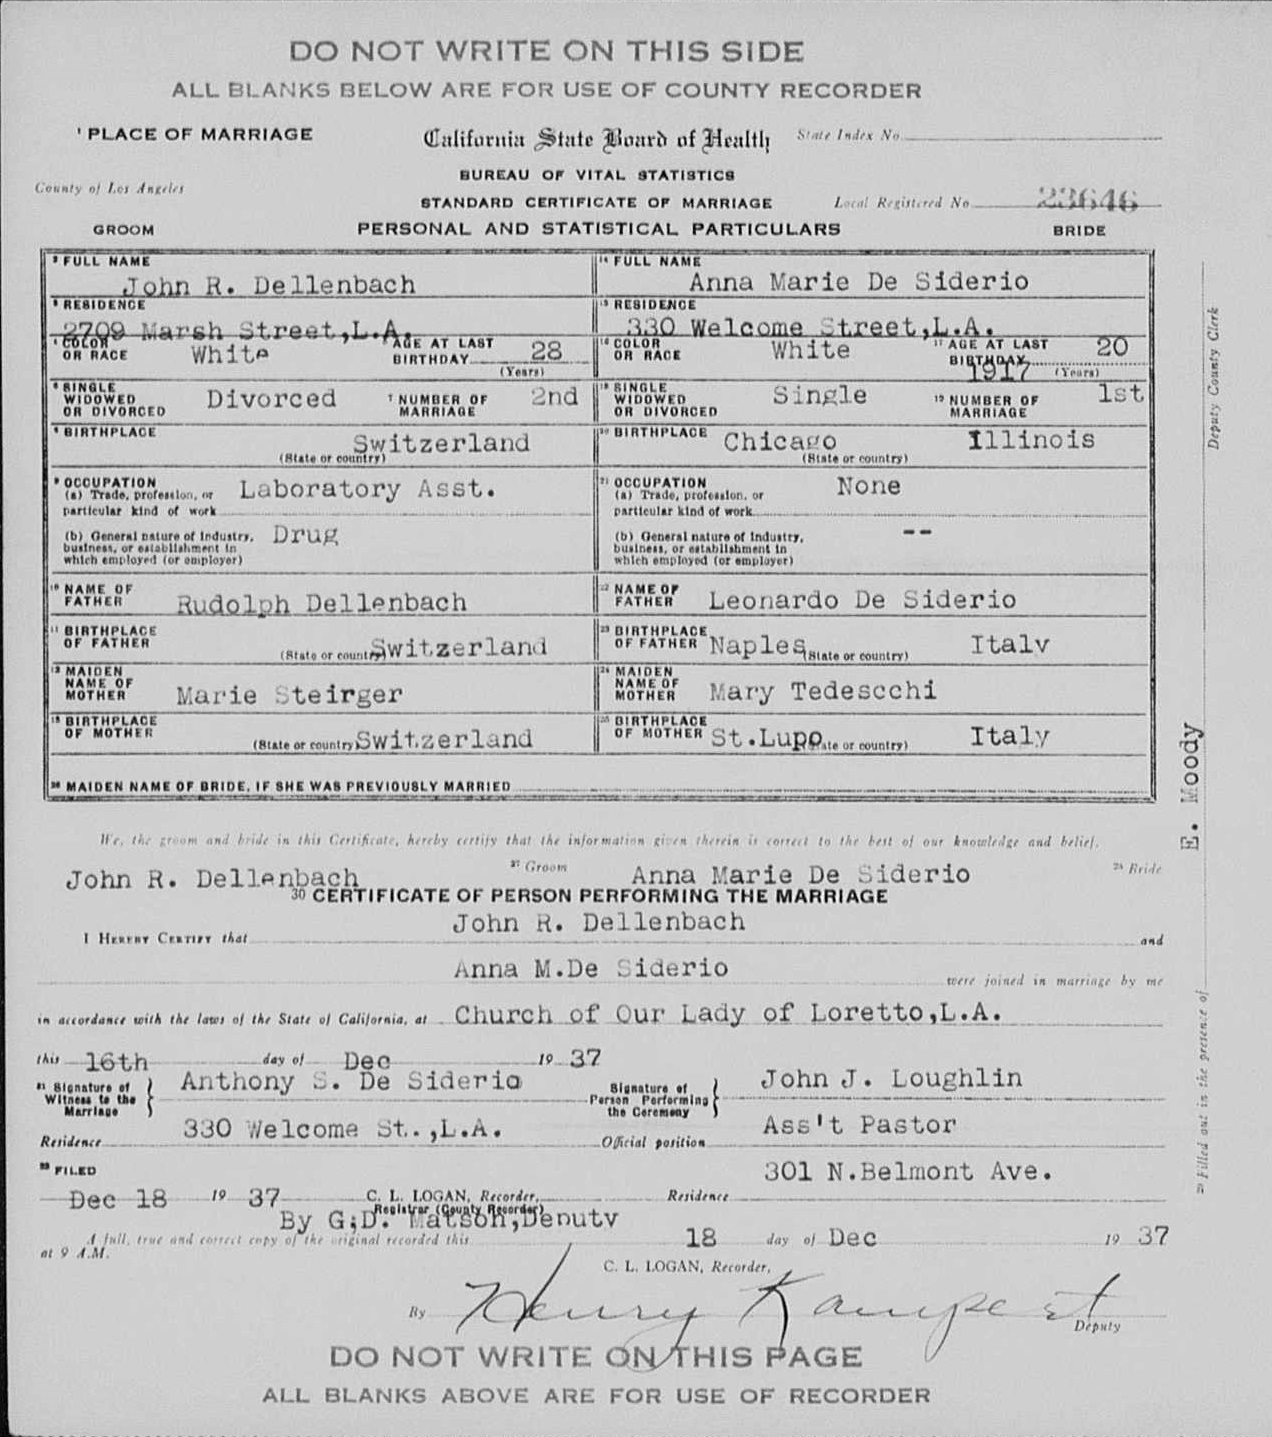 DO NOT WRITE ON THIS SIDE
ALL BLANKS BELOW ARE FOR USE OF COUNTY RECORDER
1 PLACE OF MARRIAGE California State Board of Health State Index No.
BUREAU OF VITAL STATISTICS
County of Los Angeles STANDARD CERTIFICATE OF MARRIAGE Local Registered No. 23646
GROOM PERSONAL AND STATISTICAL PARTICULARS BRIDE
2 FULL NAME John R. Dellenbach
14 FULL NAME Anna Marie De Siderio
3 RESIDENCE 2709 Marsh Street,L.A.
15 RESIDENCE 330 Welcome Street,L.A.
4 COLOR OR RACE White AGE AT LAST BIRTHDAY 28 (Years)
16 COLOR OR RACE White 17 AGE AT LAST BIRTHDAY 20 1917 (Years)
6 SINGLE WIDOWED OR DIVORCED Divorced 7 NUMBER OF MARRIAGE 2nd
18 SINGLE WIDOWED OR DIVORCED Single 19 NUMBER OF MARRIAGE 1st
8 BIRTHPLACE Switzerland (State or country)
20 BIRTHPLACE Chicago Illinois (State or country)
9 OCCUPATION
(a) Trade, profession, or particular kind of work Laboratory Asst.
21 OCCUPATION
(a) Trade, profession, or particular kind of work None
(b) General nature of industry, business, or establishment in which employed (or employer) Drug
(b) General nature of industry, business, or establishment in which employed (or employer) --
10 NAME OF FATHER Rudolph Dellenbach
22 NAME OF FATHER Leonardo De Siderio
11 BIRTHPLACE OF FATHER (State or country) Switzerland
23 BIRTHPLACE OF FATHER Naples (State or country) Italy
12 MAIDEN NAME OF MOTHER Marie Steirger
24 MAIDEN NAME OF MOTHER Mary Tedescchi
13 BIRTHPLACE OF MOTHER (State or country) Switzerland
25 BIRTHPLACE OF MOTHER St.Lupo (State or country) Italy
26 MAIDEN NAME OF BRIDE, IF SHE WAS PREVIOUSLY MARRIED
We, the groom and bride in this Certificate, hereby certify that the information given therein is correct to the best of our knowledge and belief.
John R. Dellenbach 27 Groom Anna Marie De Siderio 28 Bride
30 CERTIFICATE OF PERSON PERFORMING THE MARRIAGE
I HEREBY CERTIFY that John R. Dellenbach and
Anna M.De Siderio were joined in marriage by me
in accordance with the laws of the State of California, at Church of Our Lady of Loretto,L.A.
this 16th day of Dec 19 37
31 Signature of Witness to the Marriage Anthony S. De Siderio Signature of Person Performing the Ceremony John J. Loughlin
Residence 330 Welcome St.,L.A. Official position Ass't Pastor
FILED 301 N.Belmont Ave.
Dec 18 19 37 C. L. LOGAN, Recorder, Residence
Registrar (County Recorder)
By G.D. Matson,Deputy
A full, true and correct copy of the original recorded this 18 day of Dec 19 37
at 9 A.M.
C. L. LOGAN, Recorder,
By Henry Kampert
Deputy
DO NOT WRITE ON THIS PAGE
ALL BLANKS ABOVE ARE FOR USE OF RECORDER
29 Filled out in the presence of E. Moody Deputy County Clerk